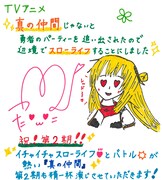 TVアニメ
真の仲間じゃないと
勇者のパーティーを追い出されたので
辺境でスローライフすることにしました
祝!第2期!!
イチャイチャスローライフ♡とバトル
が
熱い『真の仲間』
第2期も精一杯演じさせていただきます!